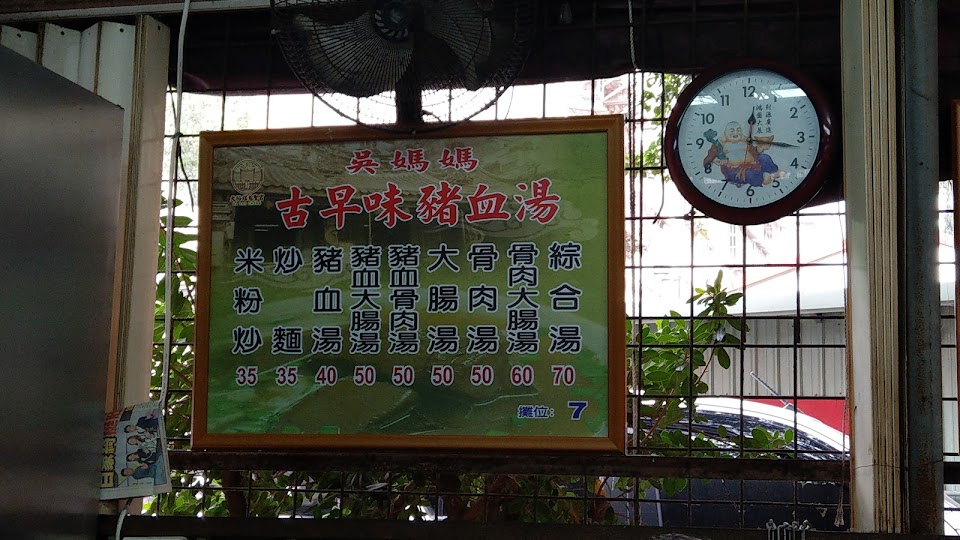 吳媽媽
古早味豬血湯
米粉炒 35
炒麵 35
豬血湯 40
豬血大腸湯 50
豬血骨肉湯 50
大腸湯 50
骨肉湯 50
骨肉大腸湯 60
綜合湯 70
攤位: 7
12
1
2
3
4
5
6
7
8
9
10
11
財源廣進
鴻圖大展